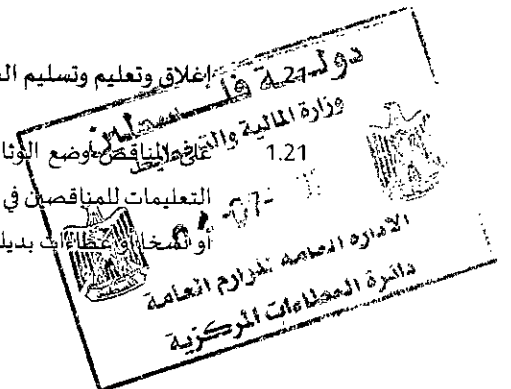 21. إغلاق وتعليم وتسليم
1.21 على المناقص وضع
التعليمات للمناقصين في
أو نسخا و عطاءات بديل
دولة فلسطين
وزارة المالية والتخطيط
-07-
الادارة العامه للوازم العامة
دائرة العطاءات المركزية